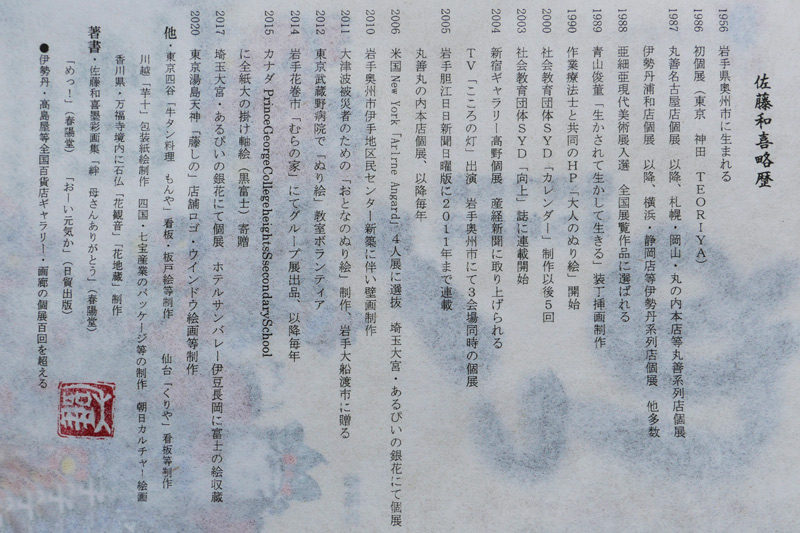 佐藤和喜略歴
1956 岩手県奥州市に生まれる
1986 初個展（東京 神田 TEORIYA）
1987 丸善名古屋店個展 以降、札幌・岡山・丸の内本店等丸善系列店個展
伊勢丹浦和店個展 以降、横浜・静岡店等伊勢丹系列店個展 他多数
1988 亜細亜現代美術展入選 全国展覧作品に選ばれる
1989 青山俊董「生かされて生かして生きる」装丁挿画制作
1990 作業療法士と共同のHP「大人のぬり絵」開始
2000 社会教育団体SYD「カレンダー」制作以後5回
2003 社会教育団体SYD「向上」誌に連載開始
2004 新宿ギャラリー高野個展 産経新聞に取り上げられる
TV「こころの灯」出演 岩手奥州市にて3会場同時の個展
2005 岩手胆江日日新聞日曜版に2011年まで連載
丸善丸の内本店個展、以降毎年
2006 米国New York「Arlrne Angard」4人展に選抜 埼玉大宮・あるぴいの銀花にて個展
2010 岩手奥州市伊手地区民センター新築に伴い壁画制作
2011 大津波被災者のための「おとなのぬり絵」制作、岩手大船渡市に贈る
2012 東京武蔵野病院で「ぬり絵」教室ボランティア
2014 岩手花巻市「むらの家」にてグループ展出品、以降毎年
2015 カナダ PrinceGeorgeCollegeheightsSsecondarySchool
に全紙大の掛け軸絵（黒富士）寄贈
2017 埼玉大宮・あるぴいの銀花にて個展 ホテルサンバレー伊豆長岡に富士の絵収蔵
2020 東京湯島天神「藤しの」店舗ロゴ・ウインドウ絵画等制作
他・東京四谷「牛タン料理 もんや」看板・板戸絵等制作 仙台「くりや」看板等制作
川越「芋十」包装紙絵制作 四国・七宝産業のパッケージ等の制作 朝日カルチャー絵画
香川県・万福寺境内に石仏「花観音」「花地蔵」制作
著書・佐藤和喜墨彩画集「絆 母さんありがとう」（春陽堂）
「めっ！」（春陽堂） 「おーい元気か」（日貿出版）
●伊勢丹・高島屋等全国百貨店ギャラリー・画廊の個展百回を超える